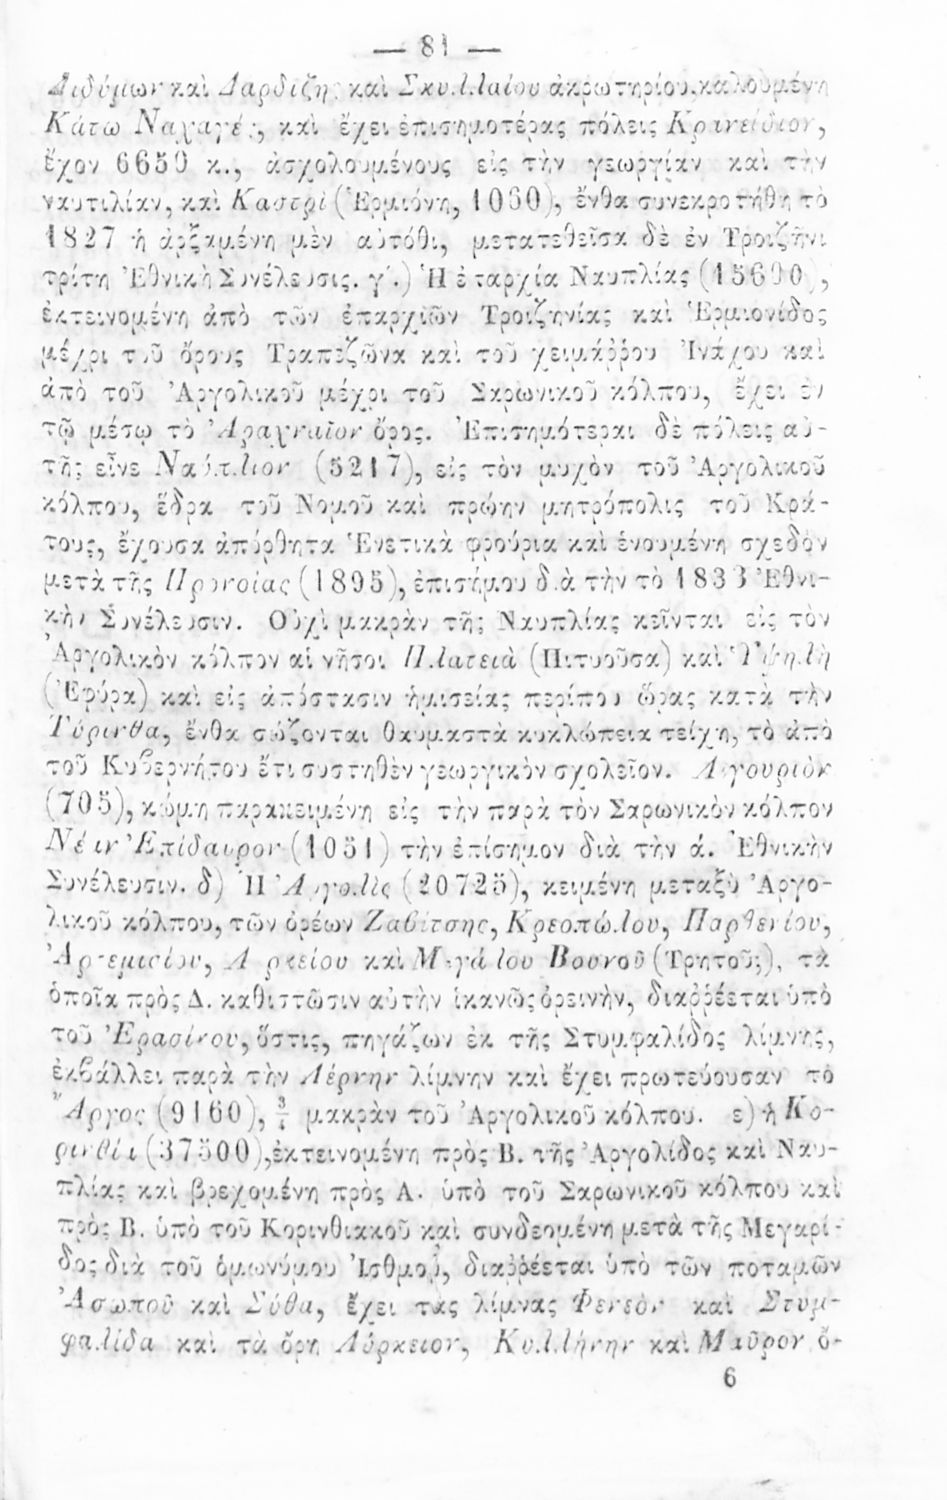 — 81 —
Διδύμων καὶ Δαρδίζης καὶ Σκυλλαίου ἀκρωτηρίου καλουμένη
Κάτω Ναχαγές, καὶ ἔχει ἐπισημοτέρας πόλεις Κρανείδιον,
ἔχον 6650 κ., ἀσχολουμένους εἰς τὴν γεωργίαν καὶ τὴν
ναυτιλίαν, καὶ Καστρὶ (Ἑρμιόνη, 1060), ἔνθα συνεκροτήθη τὸ
1827 ἡ ἀρξαμένη μὲν αὐτόθι, μετατεθεῖσα δὲ ἐν Τροιζῆνι
τρίτη Ἐθνικὴ Συνέλευσις. γ΄.) Ἡ ἐπαρχία Ναυπλίας (15600),
ἐκτεινομένη ἀπὸ τῶν ἐπαρχιῶν Τροιζηνίας καὶ Ἑρμιονίδος
μέχρι τοῦ ὄρους Τραπεζῶνα καὶ τοῦ χειμάῤῥου Ἰνάχου καὶ
ἀπὸ τοῦ Ἀργολικοῦ μέχρι τοῦ Σαρωνικοῦ κόλπου, ἔχει ἐν
τῷ μέσῳ τὸ Ἀραχναῖον ὄρος. Ἐπισημότεραι δὲ πόλεις αὐ-
τῆς εἶνε Ναύπλιον (5217), εἰς τὸν μυχὸν τοῦ Ἀργολικοῦ
κόλπου, ἕδρα τοῦ Νομοῦ καὶ πρώην μητρόπολις τοῦ Κρά-
τους, ἔχουσα ἀπόρθητα Ἑνετικὰ φρούρια καὶ ἑνουμένη σχεδὸν
μετὰ τῆς Προνοίας (1895), ἐπισήμου διὰ τὴν τὸ 1833 Ἐθνι-
κὴν Συνέλευσιν. Οὐχὶ μακρὰν τῆς Ναυπλίας κεῖνται εἰς τὸν
Ἀργολικὸν κόλπον αἱ νῆσοι Πλατειὰ (Πιτυοῦσα) καὶ Ὑψηλὴ
(Ἐφύρα) καὶ εἰς ἀπόστασιν ἡμισείας περίπου ὥρας κατὰ τὴν
Τύρινθα, ἔνθα σώζονται θαυμαστὰ κυκλώπεια τείχη, τὸ ἀπὸ
τοῦ Κυβερνήτου ἔτι συστηθὲν γεωργικὸν σχολεῖον. Λιγουριὸν
(705), κώμη παρακειμένη εἰς τὴν παρὰ τὸν Σαρωνικὸν κόλπον
Νέαν Ἐπίδαυρον (1051) τὴν ἐπίσημον διὰ τὴν ά. Ἐθνικὴν
Συνέλευσιν. δ) Ἡ Ἀργολὶς (20725), κειμένη μεταξὺ Ἀργο-
λικοῦ κόλπου, τῶν ὀρέων Ζαβίτσης, Κρεοπώλου, Παρθενίου,
Ἀρτεμισίου, Λυρκείου καὶ Μεγάλου Βουνοῦ (Τρητοῦς), τὰ
ὁποῖα πρὸς Δ. καθιστῶσιν αὐτὴν ἱκανῶς ὀρεινὴν, διαῤῥέεται ὑπὸ
τοῦ Ἐρασίνου, ὅστις, πηγάζων ἐκ τῆς Στυμφαλίδος λίμνης,
ἐκβάλλει παρὰ τὴν Λέρνην λίμνην καὶ ἔχει πρωτεύουσαν τὸ
Ἄργος (9160), ¾ μακρὰν τοῦ Ἀργολικοῦ κόλπου. ε) ἡ Κο-
ρινθία (37500), ἐκτεινομένη πρὸς Β. τῆς Ἀργολίδος καὶ Ναυ-
πλίας καὶ βρεχομένη πρὸς Α. ὑπὸ τοῦ Σαρωνικοῦ κόλπου καὶ
πρὸς Β. ὑπὸ τοῦ Κορινθιακοῦ καὶ συνδεομένη μετὰ τῆς Μεγαρί-
δος διὰ τοῦ ὁμωνύμου Ἰσθμοῦ, διαῤῥέεται ὑπὸ τῶν ποταμῶν
Ἀσωποῦ καὶ Σύθα, ἔχει τὰς λίμνας Φενεὸν καὶ Στυμ-
φαλίδα καὶ τὰ ὄρη Λύρκειον, Κυλλήνην καὶ Μαῦρον ὄ-
6